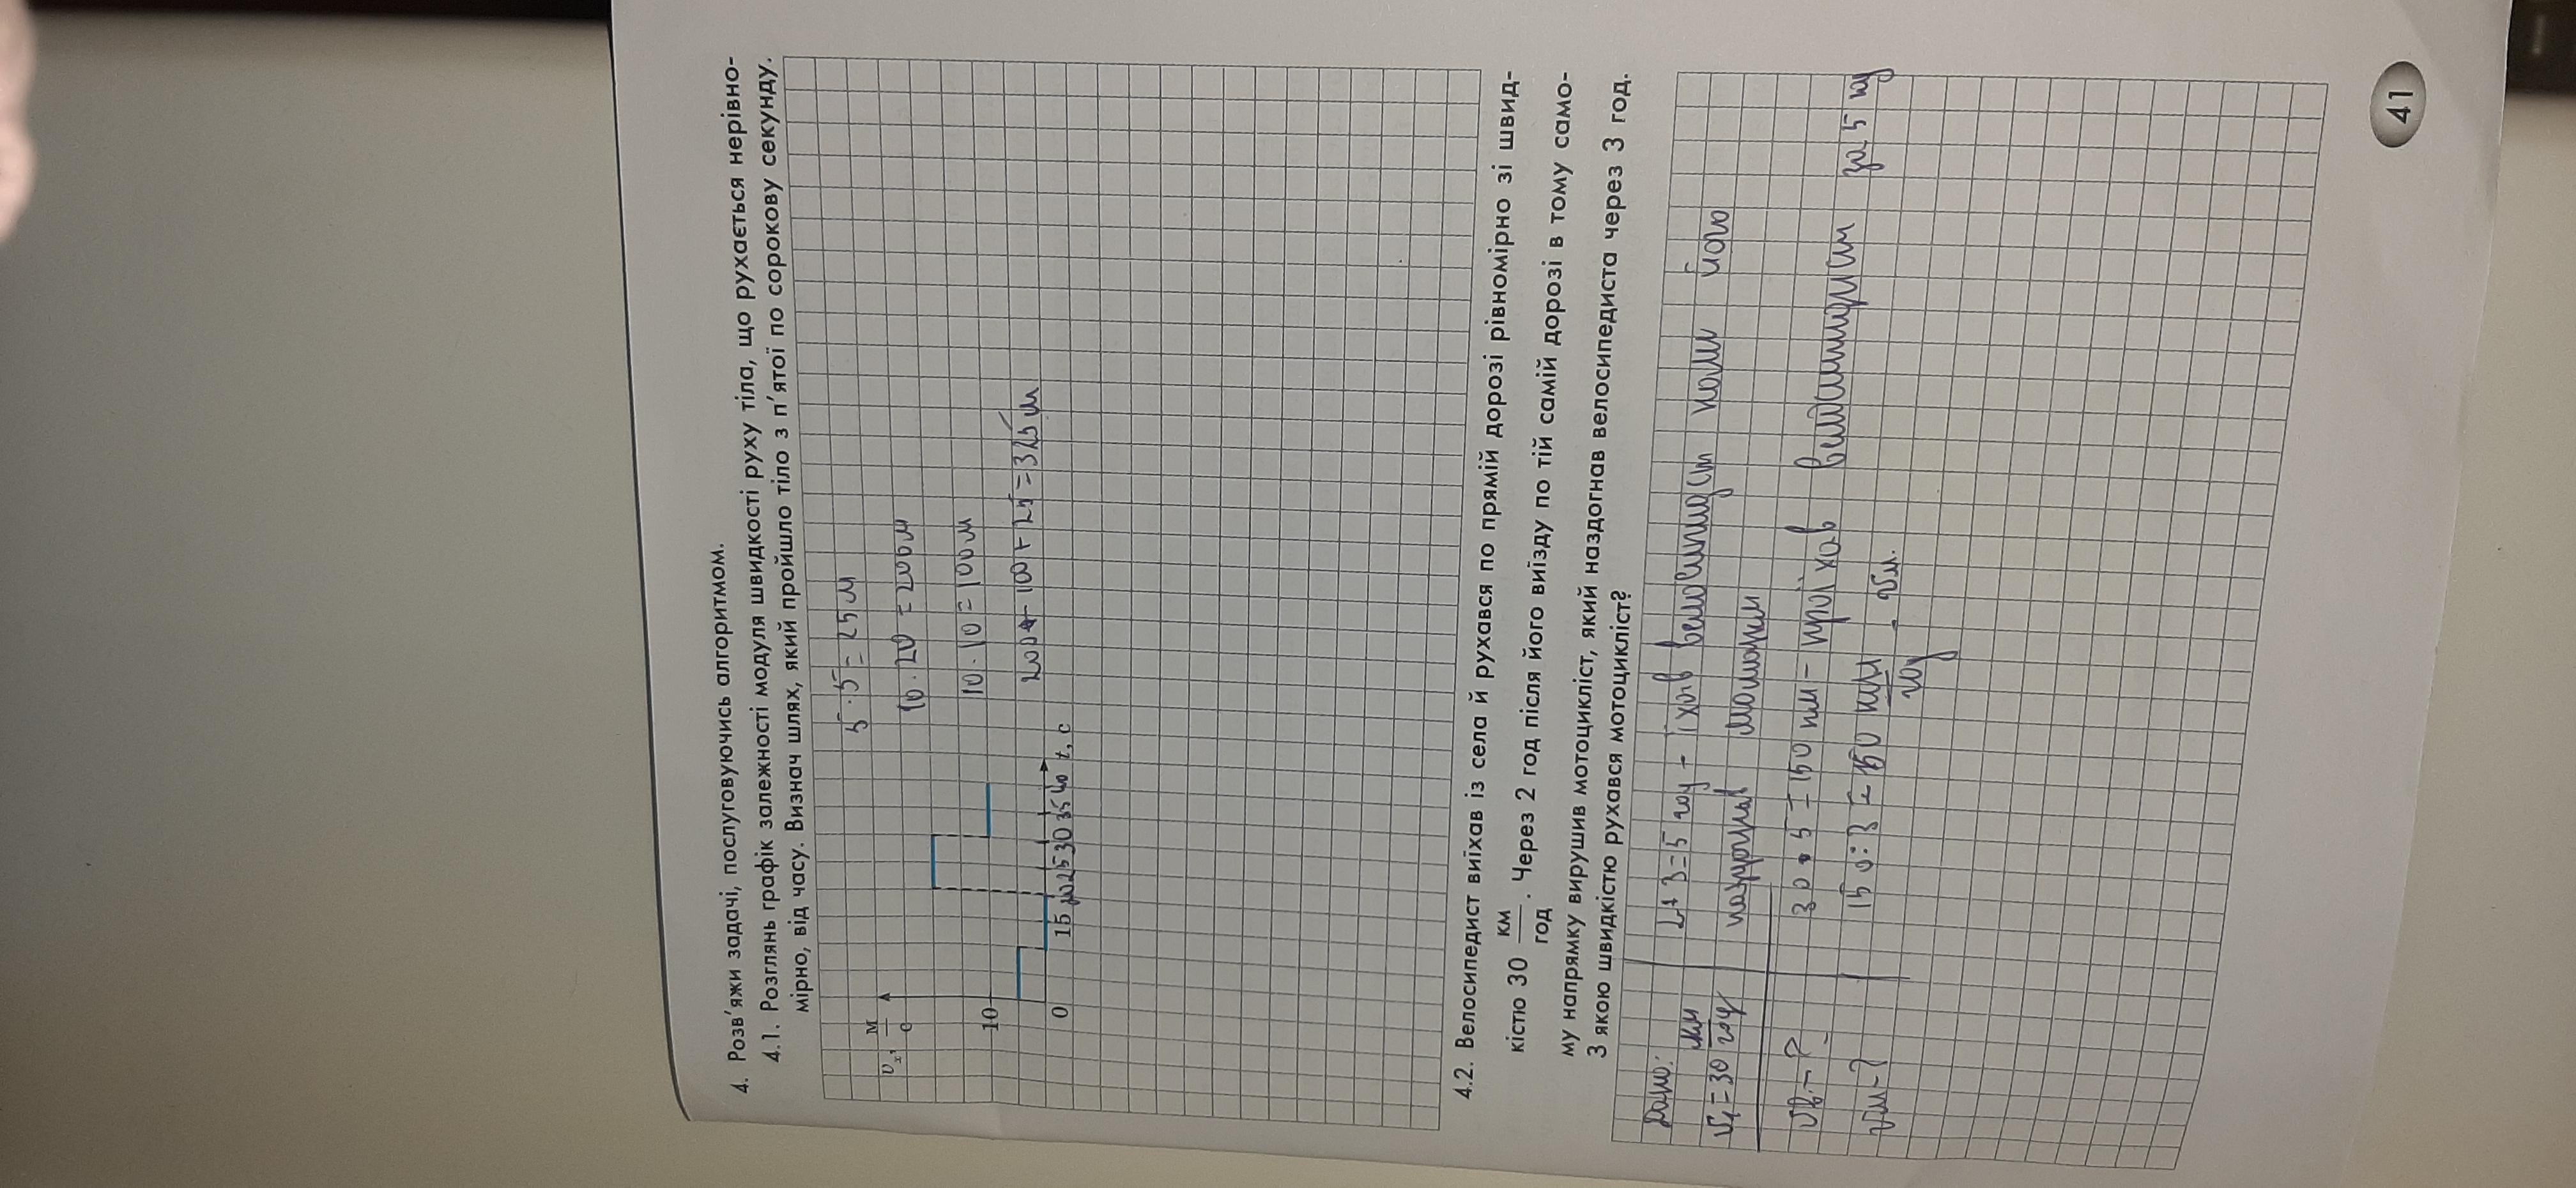 4. Розв'яжи задачі, послуговуючись алгоритмом.
4.1. Розглянь графік залежності модуля швидкості руху тіла, що рухається нерівно-
мірно, від часу. Визнач шлях, який пройшло тіло з п'ятої по сорокову секунду.
υx, м/с
10
0
15 20 25 30 35 40 t, с
5 · 5 = 25 м
10 · 20 = 200 м
10 · 10 = 100 м
200 + 100 + 25 = 325 м
4.2. Велосипедист виїхав із села й рухався по прямій дорозі рівномірно зі швид-
кістю 30 км/год. Через 2 год після його виїзду по тій самій дорозі в тому само-
му напрямку вирушив мотоцикліст, який наздогнав велосипедиста через 3 год.
З якою швидкістю рухався мотоцикліст?
Дано:
υ1 = 30 км/год
υв. – ?
υм – ?
2 + 3 = 5 год – їхав велосипедист коли його
наздогнав
30 · 5 = 150 км – проїхав велосипедист за 5 год
150 : 3 = 50 км/год - υм.
41